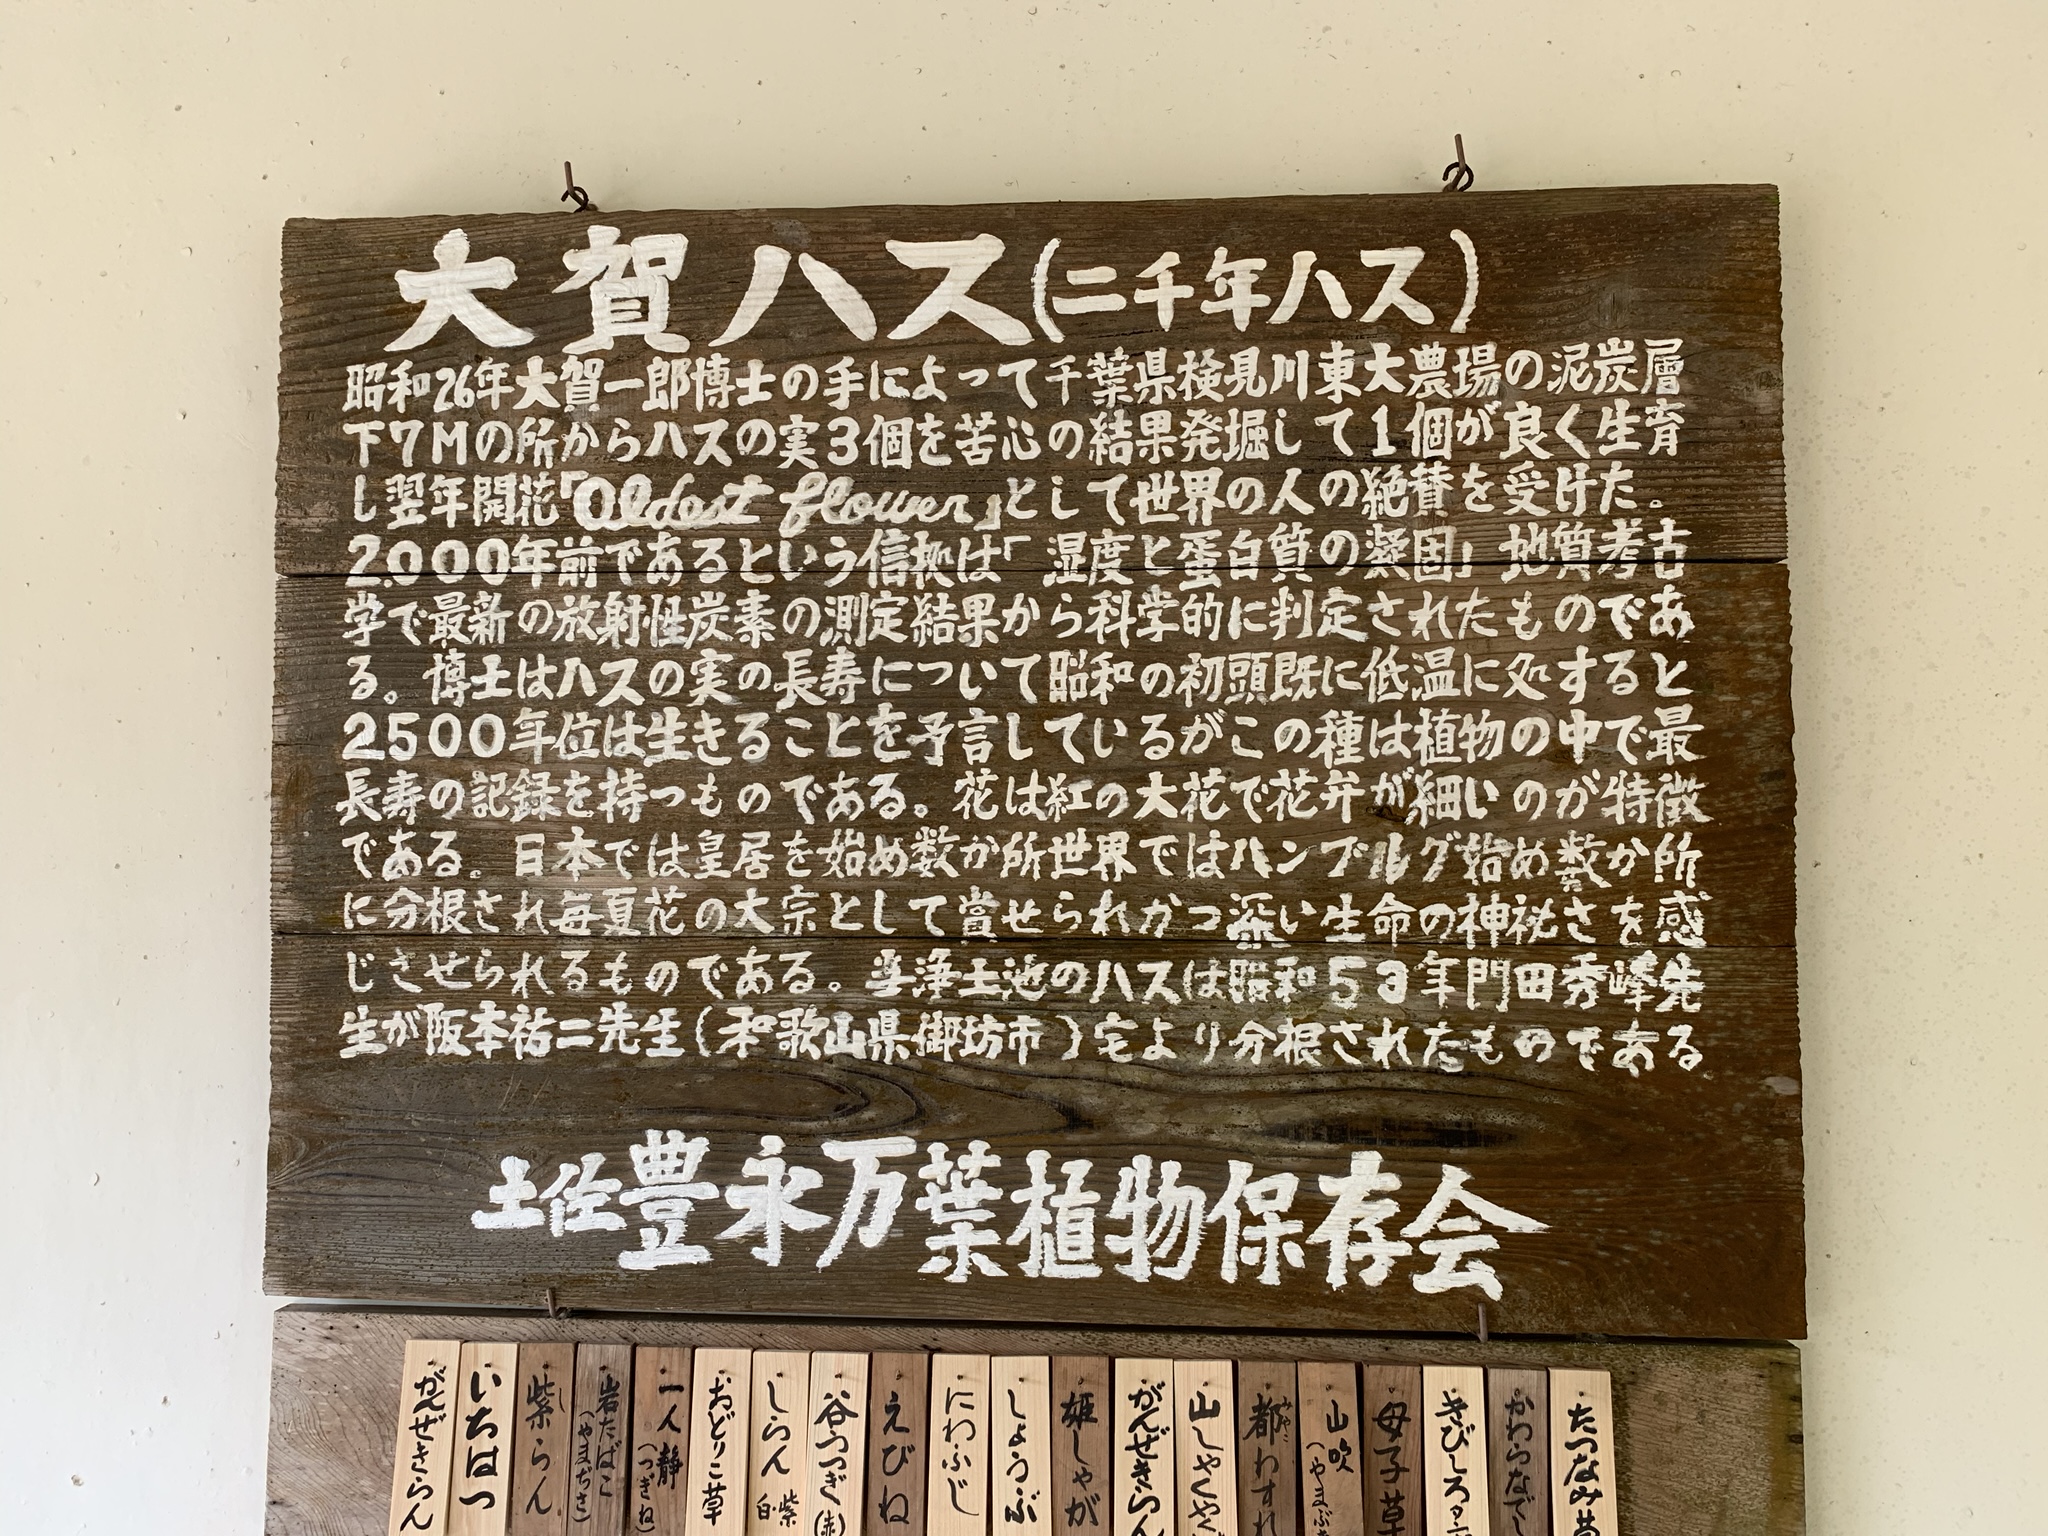 大賀ハス(二千年ハス)
昭和26年大賀一郎博士の手によって千葉県検見川東大農場の泥炭層
下7Mの所からハスの実3個を苦心の結果発堀して1個が良く生育
し翌年開花「Oldest flower」として世界の人の絶賛を受けた。
2.000年前であるという信拠は「湿度と蛋白質の凝固」地質考古
学で最新の放射性炭素の測定結果から科学的に判定されたものであ
る。博士はハスの実の長寿について昭和の初頭既に低温に処すると
2500年位は生きることを予言しているがこの種は植物の中で最
長寿の記録を持つものである。花は紅の大花で花弁が細いのが特徴
である。日本では皇居を始め数か所世界ではハンブルグ始め数か所
に分根され毎夏花の大宗として賞せられかつ深い生命の神秘さを感
じさせられるものである。当浄土池のハスは昭和53年門田秀峰先
生が阪本祐二先生(和歌山県御坊市)宅より分根されたものである
土佐豊永万葉植物保存会
がんぜきらん
いちはつ
紫らん
し
岩たばこ
(やまぢさ)
一人静
(つぎね)
おどりこ草
しらん
紫
白
谷うつぎ(赤)
えびね
にわふじ
しょうぶ
姫しゃが
がんぜきらん
山しゃくや
都わすれ
みやこ
山吹
(やまぶき
母子草
きびしろ
かわらなでし
たつなみ草